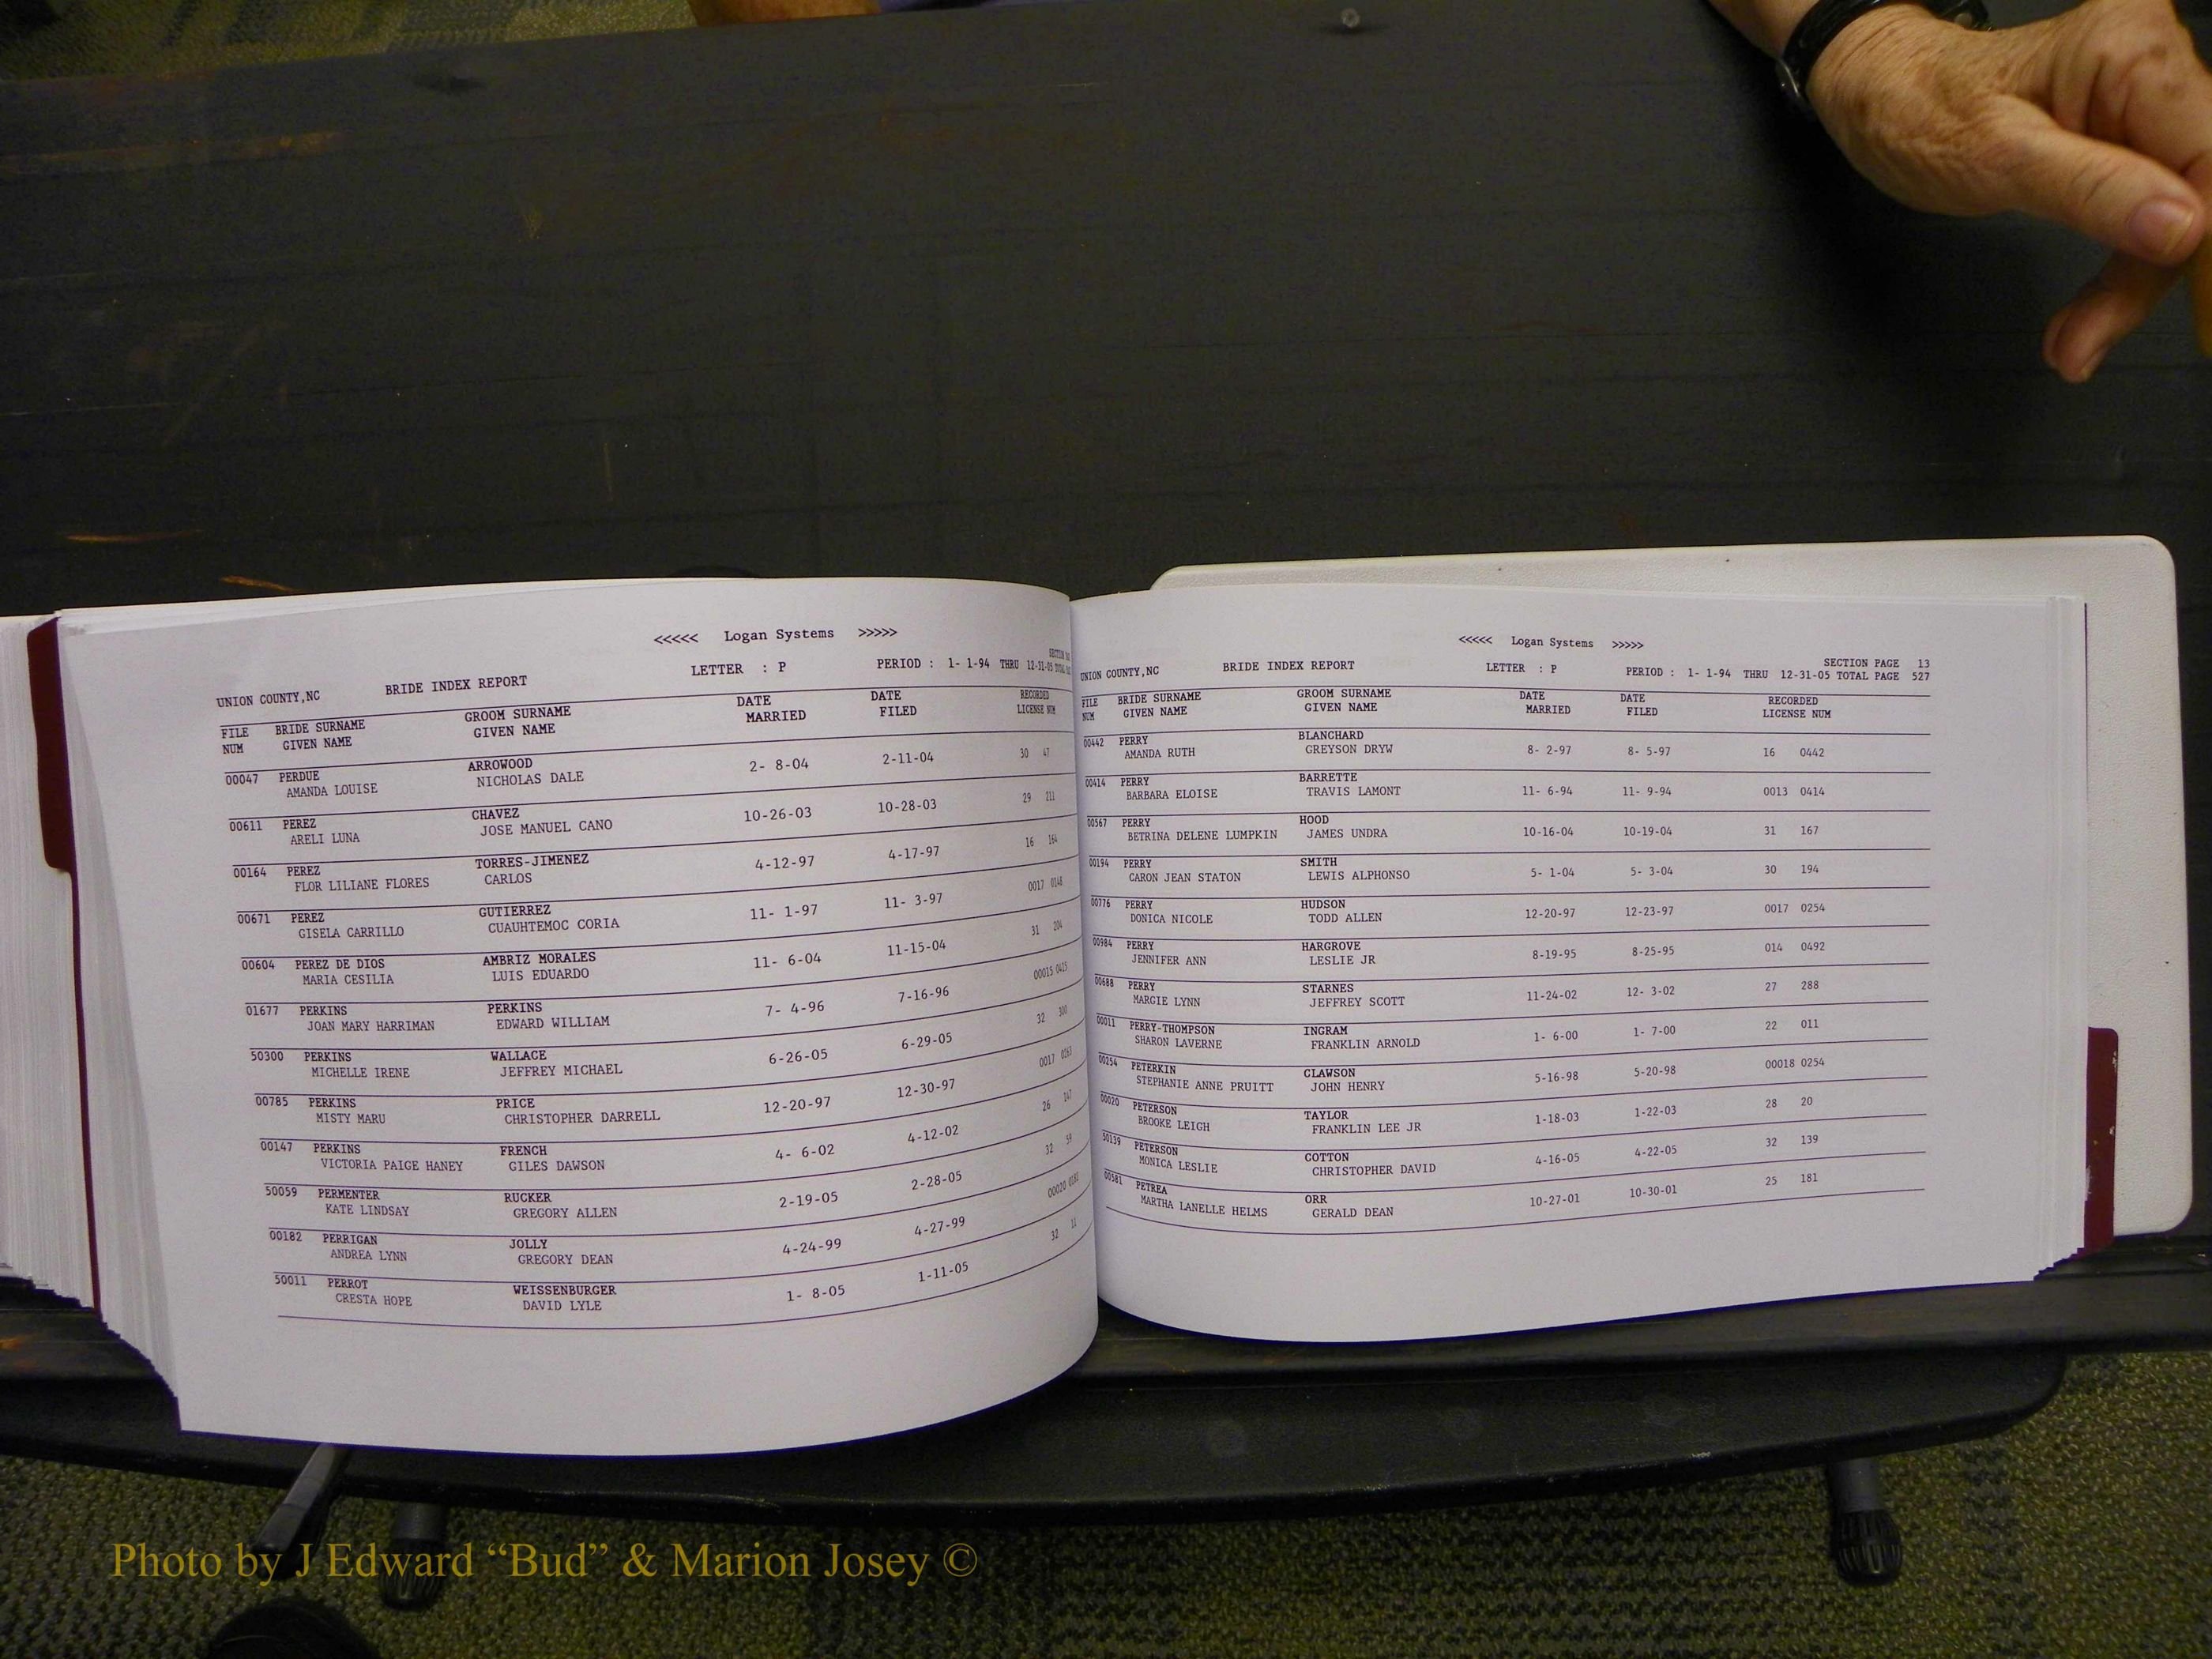 <<<<< Logan Systems >>>>>
UNION COUNTY,NC BRIDE INDEX REPORT LETTER : P PERIOD : 1- 1-94 THRU 12-31-05
FILE BRIDE SURNAME GROOM SURNAME DATE DATE RECORDED
NUM GIVEN NAME GIVEN NAME MARRIED FILED LICENSE NUM
00047 PERDUE ARROWOOD 2- 8-04 2-11-04 30 47
AMANDA LOUISE NICHOLAS DALE
00611 PEREZ CHAVEZ 10-26-03 10-28-03 29 211
ARELI LUNA JOSE MANUEL CANO
00164 PEREZ TORRES-JIMENEZ 4-12-97 4-17-97 16 164
FLOR LILIANE FLORES CARLOS
00671 PEREZ GUTIERREZ 11- 1-97 11- 3-97 0017 0148
GISELA CARRILLO CUAUHTEMOC CORIA
00604 PEREZ DE DIOS AMBRIZ MORALES 11- 6-04 11-15-04 31 204
MARIA CESILIA LUIS EDUARDO
01677 PERKINS PERKINS 7- 4-96 7-16-96 00015 0425
JOAN MARY HARRIMAN EDWARD WILLIAM
50300 PERKINS WALLACE 6-26-05 6-29-05 32 300
MICHELLE IRENE JEFFREY MICHAEL
00785 PERKINS PRICE 12-20-97 12-30-97 0017 0263
MISTY MARU CHRISTOPHER DARRELL
00147 PERKINS FRENCH 4- 6-02 4-12-02 26 147
VICTORIA PAIGE HANEY GILES DAWSON
50059 PERMENTER RUCKER 2-19-05 2-28-05 32 59
KATE LINDSAY GREGORY ALLEN
00182 PERRIGAN JOLLY 4-24-99 4-27-99 00020
ANDREA LYNN GREGORY DEAN
50011 PERROT WEISSENBURGER 1- 8-05 1-11-05 32 11
CRESTA HOPE DAVID LYLE
<<<<< Logan Systems >>>>>
SECTION PAGE 13
UNION COUNTY,NC BRIDE INDEX REPORT LETTER : P PERIOD : 1- 1-94 THRU 12-31-05 TOTAL PAGE 527
FILE BRIDE SURNAME GROOM SURNAME DATE DATE RECORDED
NUM GIVEN NAME GIVEN NAME MARRIED FILED LICENSE NUM
00442 PERRY BLANCHARD 8- 2-97 8- 5-97 16 0442
AMANDA RUTH GREYSON DRYW
00414 PERRY BARRETTE 11- 6-94 11- 9-94 0013 0414
BARBARA ELOISE TRAVIS LAMONT
00567 PERRY HOOD 10-16-04 10-19-04 31 167
BETRINA DELENE LUMPKIN JAMES UNDRA
00194 PERRY SMITH 5- 1-04 5- 3-04 30 194
CARON JEAN STATON LEWIS ALPHONSO
00776 PERRY HUDSON 12-20-97 12-23-97 0017 0254
DONICA NICOLE TODD ALLEN
00984 PERRY HARGROVE 8-19-95 8-25-95 014 0492
JENNIFER ANN LESLIE JR
00688 PERRY STARNES 11-24-02 12- 3-02 27 288
MARGIE LYNN JEFFREY SCOTT
00011 PERRY-THOMPSON INGRAM 1- 6-00 1- 7-00 22 011
SHARON LAVERNE FRANKLIN ARNOLD
00254 PETERKIN CLAWSON 5-16-98 5-20-98 00018 0254
STEPHANIE ANNE PRUITT JOHN HENRY
00020 PETERSON TAYLOR 1-18-03 1-22-03 28 20
BROOKE LEIGH FRANKLIN LEE JR
50139 PETERSON COTTON 4-16-05 4-22-05 32 139
MONICA LESLIE CHRISTOPHER DAVID
00581 PETREA ORR 10-27-01 10-30-01 25 181
MARTHA LANELLE HELMS GERALD DEAN
Photo by J Edward “Bud” & Marion Josey ©